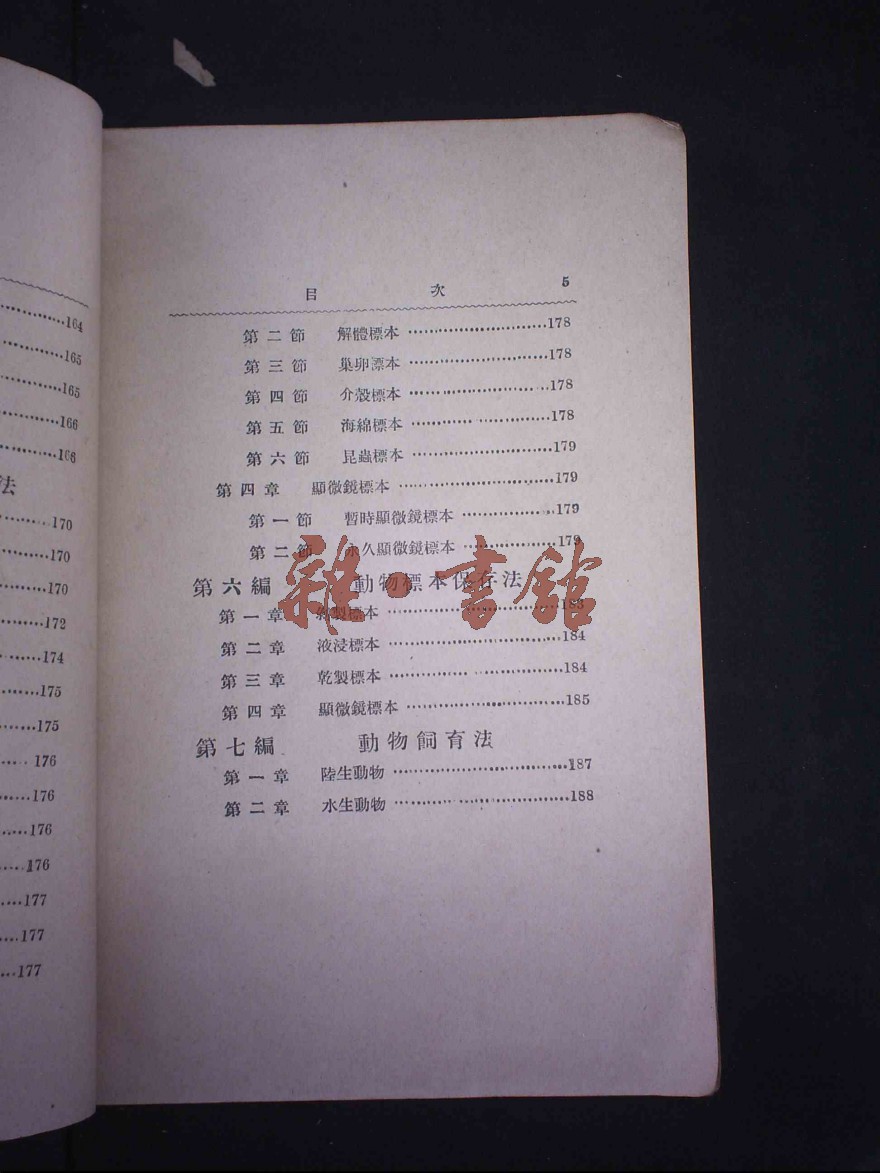 164
165
165
166
168
法
170
170
170
172
174
175
175
176
176
176
176
177
177
177
目 次 5
第二節 解體標本 178
第三節 巢卵標本 178
第四節 介殼標本 178
第五節 海綿標本 178
第六節 昆蟲標本 179
第四章 顯微鏡標本 179
第一節 暫時顯微鏡標本 179
第二節 永久顯微鏡標本 179
第六編 動物標本保存法
第一章 剝製標本 183
第二章 液浸標本 184
第三章 乾製標本 184
第四章 顯微鏡標本 185
第七編 動物飼育法
第一章 陸生動物 187
第二章 水生動物 188
雜·書館